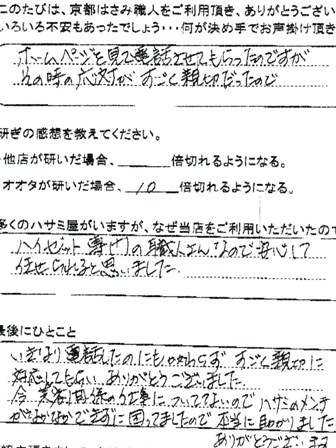 このたびは、京都はさみ職人をご利用頂き、ありがとうござい
いろいろ不安もあったでしょう・・・何が決め手でお声掛け頂き
ホームページを見て電話させてもらったのですが
その時の応対がすごく親切だったので
研ぎの感想を教えてください。
他店が研いだ場合、＿＿＿倍切れるようになる。
オオタが研いだ場合、10 倍切れるようになる。
多くのハサミ屋がいますが、なぜ当店をご利用いただいたので
ハイゼット専門の職人さんなので安心して
任せられると思いました。
最後にひとこと
いきなり電話したのにもかかわらず すごく親切に
対応してもらい ありがとうございました。
今 美容関係の仕事についてないので ハサミのメンテ
がなかなかできずに困ってましたので 本当に助かりました
ありがとうございま